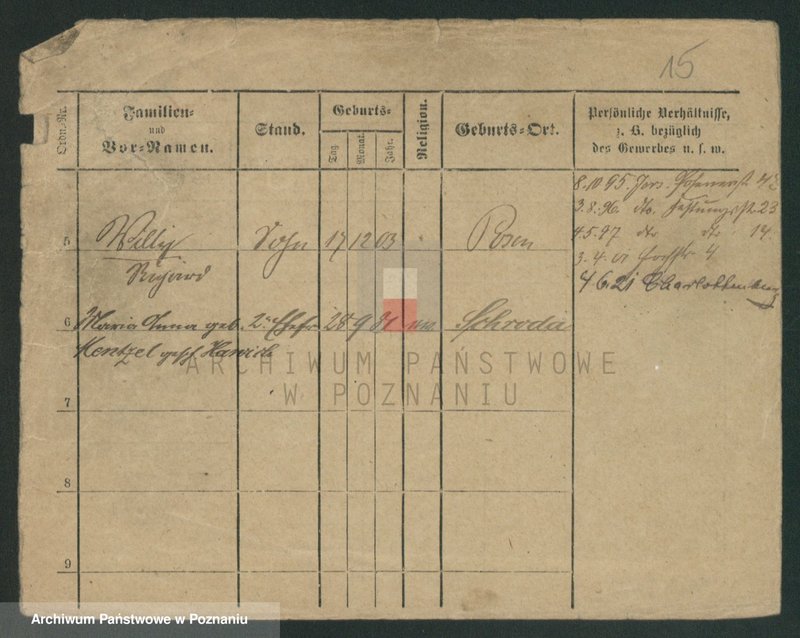 15
Ordn.-Nr.
Familien-
und
Vor-Namen.
Stand.
Geburts-
Tag.
Monat.
Jahr.
Religion.
Geburts-Ort.
Persönliche Verhältnisse,
z. B. bezüglich
des Gewerbes u. s. w.
8.10.95. Jers. 42
3.8.96. dto. Festungsstr. 23
4.5.97 dto dto 14.
3.4.01 4
4.6.21 Charlottenburg
5 Willy Sohn 17 12 03 Posen
Richard
6 Maria Anna geb. 2te Ehefr 28 9 81 Schroda
Mentzel gesch.
7
8
9
ARCHIWUM PAŃSTWOWE
W POZNANIU
Archiwum Państwowe w Poznaniu